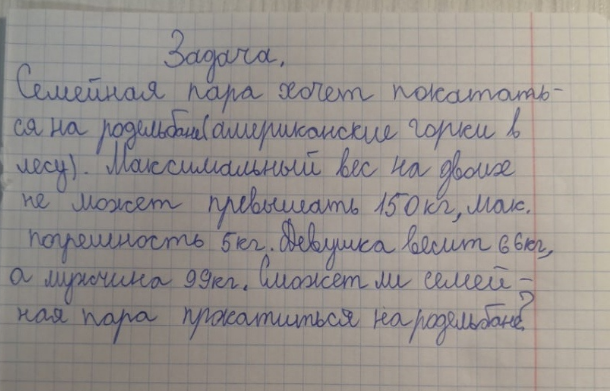 Задача.
Семейная пара хочет покатать-
ся на родельбане(американские горки в
лесу). Максимальный вес на двоих
не может превышать 150кг, мак.
погрешность 5кг. Девушка весит 66кг,
а мужчина 99кг. Сможет ли семей-
ная пара прокатиться на родельбане?